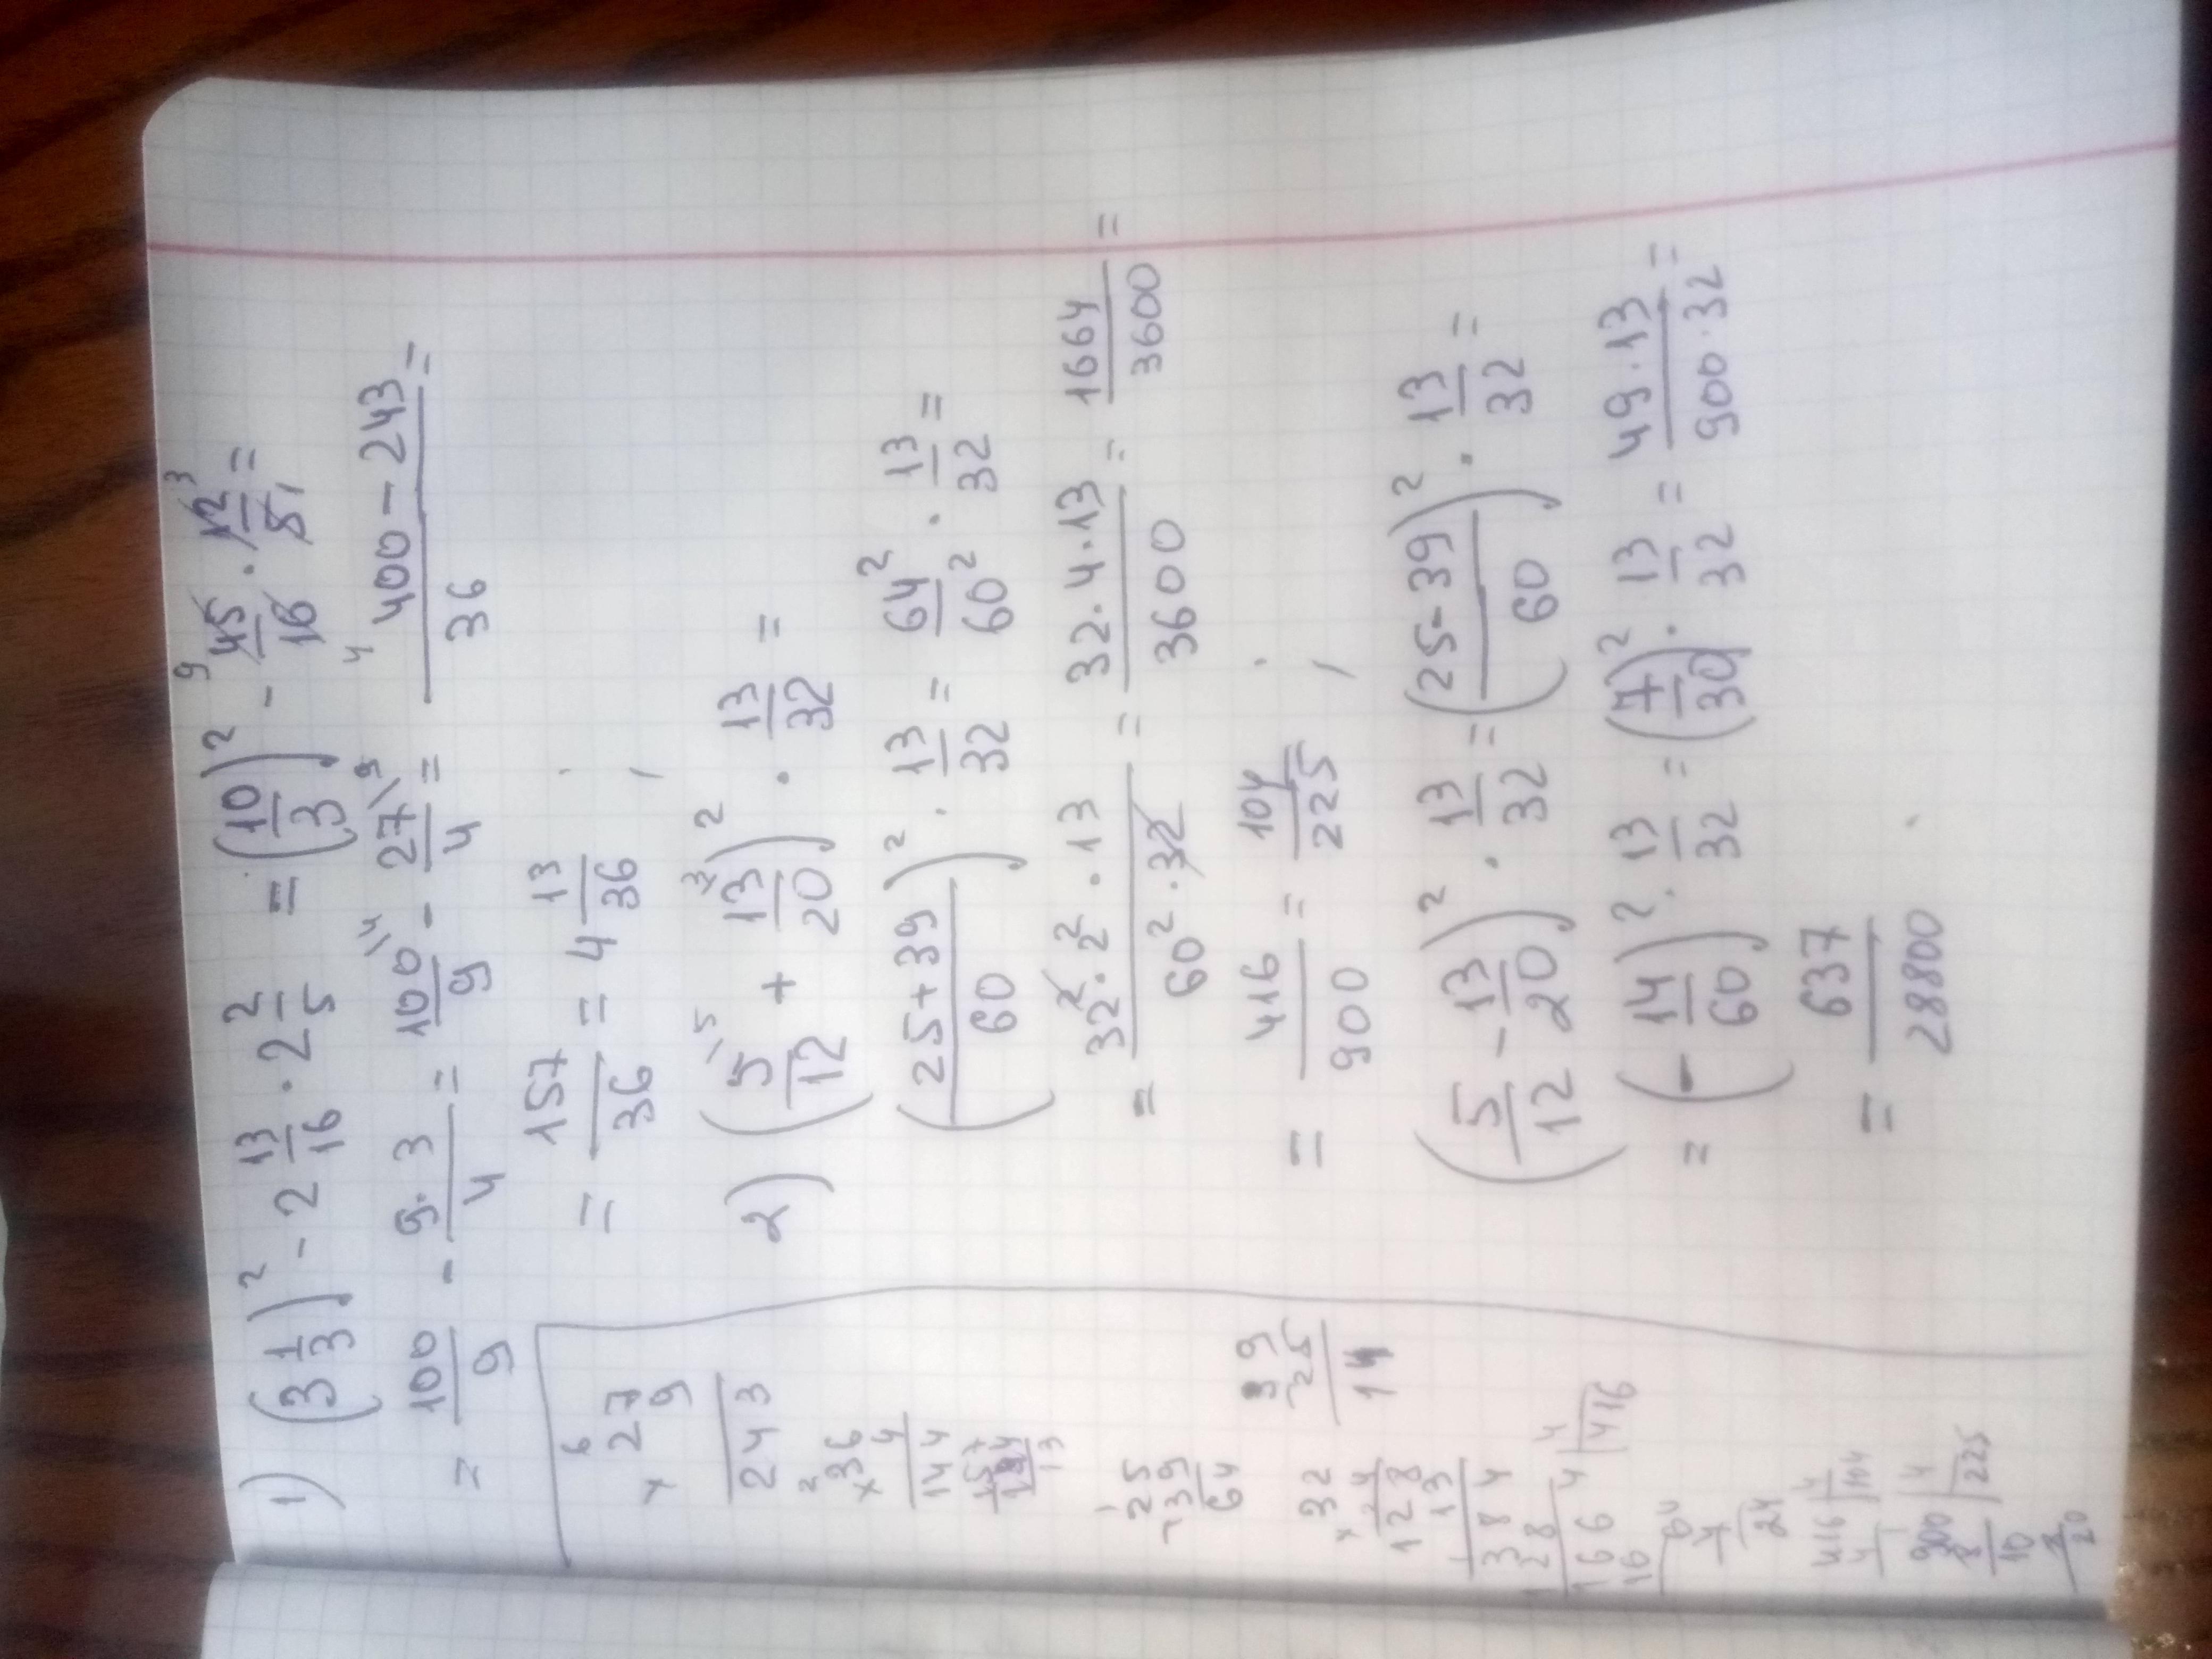 1) (3 1/3)² - 2 13/16 · 2 2/5 = (10/3)² - 45/16 · 12/5 =
= 100/9 - 9·3/4 = 100/9 - 27/4 = 400-243/36 =
= 157/36 = 4 13/36 ;
2) (5/12 + 13/20)² · 13/32 =
(25+39/60)² · 13/32 = 64²/60² · 13/32 =
= 32²·2²·13/60²·32 = 32·4·13/3600 = 1664/3600 =
= 416/900 = 104/225 ;
(5/12 - 13/20)² · 13/32 = (25-39/60)² · 13/32 =
= (-14/60)² · 13/32 = (7/30)² · 13/32 = 49·13/900·32 =
= 637/28800 .
6
× 27
9
243
2
× 36
4
144
157
144
13
1
25
39
64
39
- 25
14
× 32
4
128
13
384
128
1664 4
16 416
64
4
24
416 4
4 104
900 4
8 225
10
20